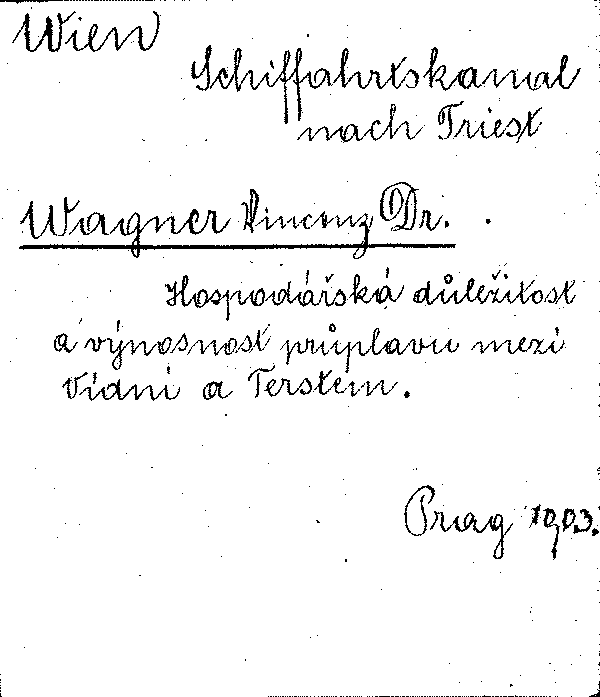 Wien
Schiffahrtskanal
nach Triest
Wagner Vincenz Dr.
Hospodářská důležitost
a výnosnost průplavu mezi
Vídni a Terstem.
Prag 1903.